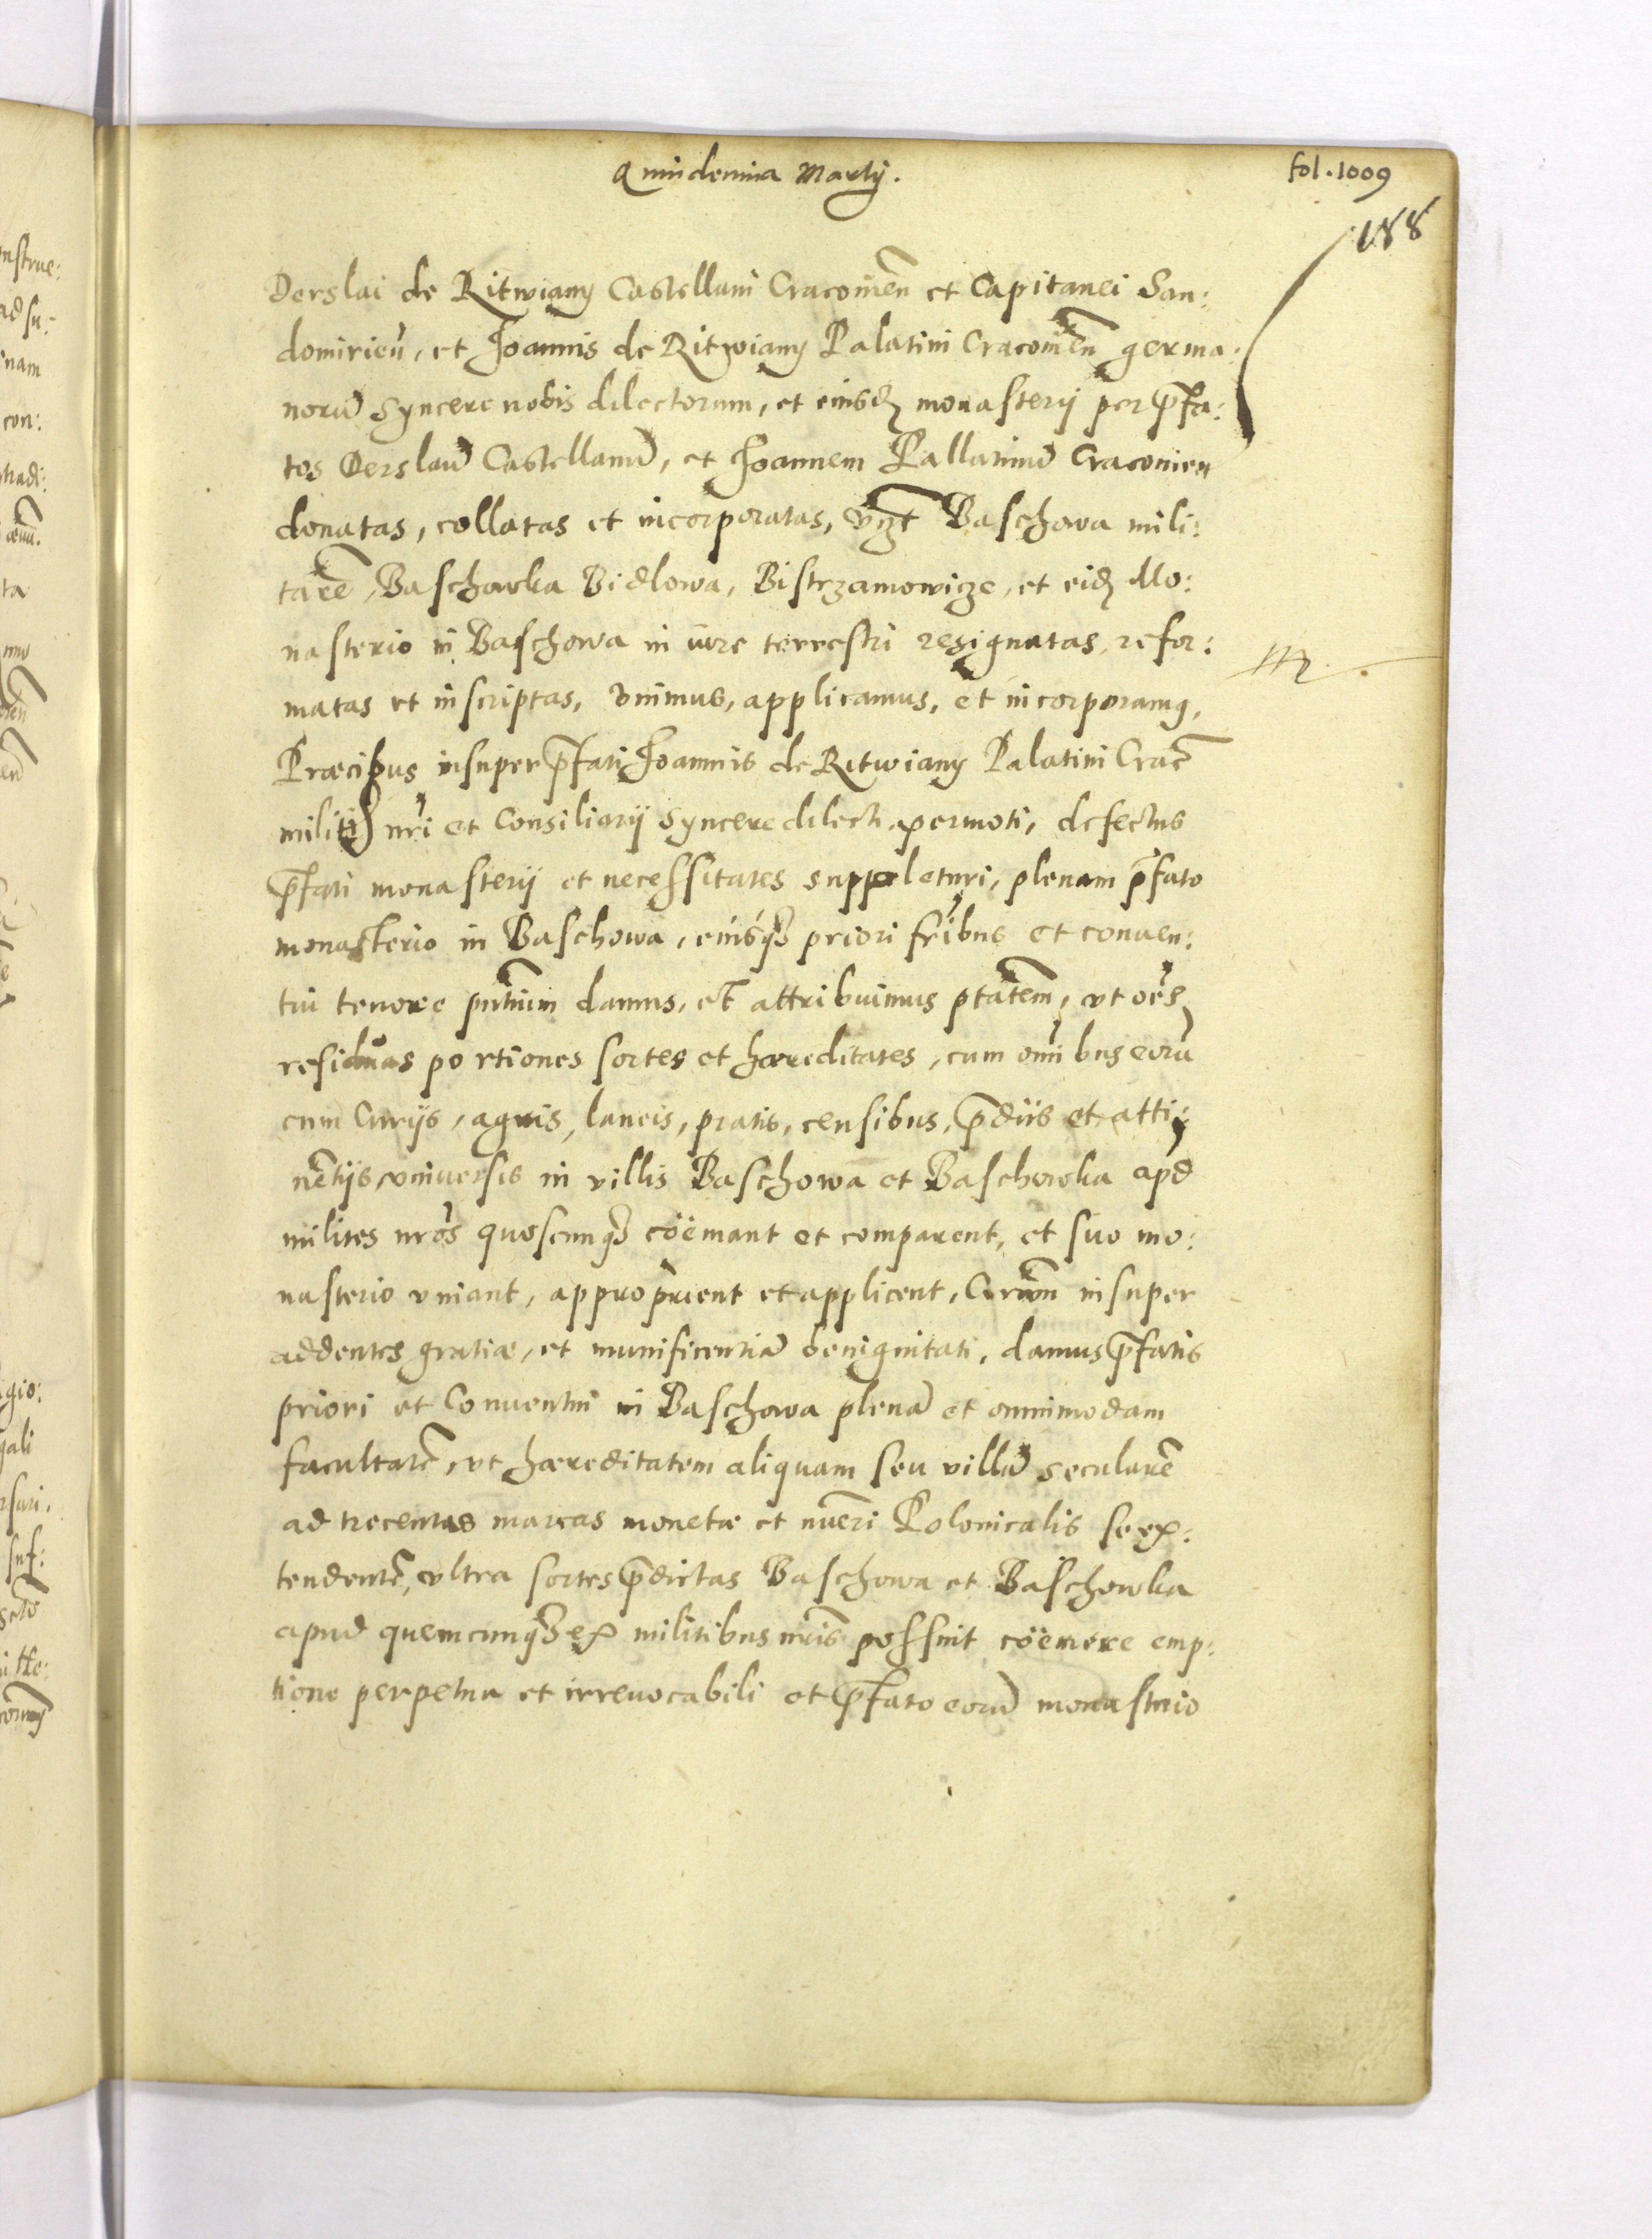 Quindenna Martij.
fol. 1009
188
Derslai de Ritwiany Castellani Cracouien̄ et Capitanei San:
domirien̄, et Joannis de Ritwiany Palatini Cracouien̄ germa:
norū syncere nobis dilectorum, et eiusdꝫ monasterij per p̄fa:
tos Derslaū Castellanū, et Joannem Pallatinū Cracouien
donatas, collatas et incorporatas, vꝫt Baschowa mili:
tarē, Baschowka Bidlowa, Bistrzanowicze, et eidꝫ Mo:
nasterio in Baschowa in iure terrestri resignatas, refor:
matas et inscriptas, vnimus, applicamus, et incorporamꝯ,
Præcibus insuper p̄fati Joannis de Ritwiany Palatini Crac̄
militis nr̄i et Consiliarij syncere dilecti permoti, defectus
p̄fati monasterij et necessitates suppleturi, plenam p̄fato
monasterio in Baschowa, eiusqꝫ priori fr̄ibus et conuen:
tui tenore pn̄tium damus, et attribuimus ptātem, vt oēs
residuas portiones sortes et hæreditates, cum om̄ibus eorū
cum Curijs, agris, laneis, pratis, censibus, p̄diis et atti:
nētijs vniuersis in villis Baschowa et Baschowka apd
milites nr̄os quoscunqꝫ coëmant et comparent, et suo mo:
nasterio vniant, approprient et applicent, Gratiam insuper
addentes gratiæ, et munificentiā benignitati, damus p̄fatis
priori et Conuentui in Baschowa plenā et omnimodam
facultatē, vt hæreditatem aliquam seu villā secularē
ad trecentas marcas monetæ et nu͞eri Polonicalis se ex:
tendentē, vltra sortes p̄dictas Baschowa et Baschowka
apud quemcunqꝫ ex militibus nr̄is possint coëmere emp:
tione perpetua et irreuocabili et p̄fato eorū monasterio